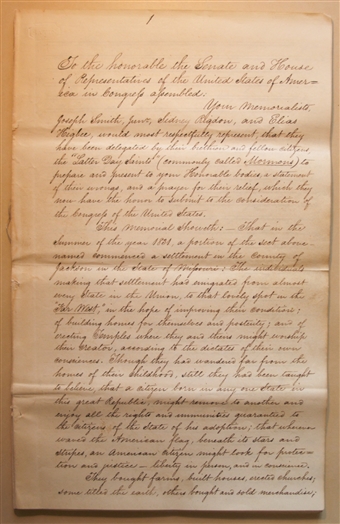 1
To the honorable the Senate and House
of Representatives of the United States of Amer=
ica in Congress assembled.
Your Memorialists,
Joseph Smith, Junr, Sidney Rigdon, and Elias
Higbee, would most respectfully represent, that they
have been delegated by their brethren and fellow citizens,
the "Latter Day Saints" (commonly called Mormons) to
prepare and present to your Honorable bodies, a statement
of their wrongs, and a prayer for their relief, which they
now have the honor to submit to the consideration of
the Congress of the United States.
This Memorial Showeth:— That in the
Summer of the year 1831, a portion of the sect above-
named commenced a settlement in the County of
Jackson in the State of Missouri: The individuals
making that settlement had emigrated from almost
every State in the Union, to that lovely spot in the
"Far West," in the hope of improving their condition;
of building homes for themselves and posterity; and of
erecting Temples where they and theirs might worship
their Creator, according to the dictates of their own
consciences. Though they had wandered far from the
homes of their childhood, still they had been taught
to believe, that a citizen born in any one State in
this great Republic, might remove to another and
enjoy all the rights and immunities guarantied to
the citizens of the State of his adoption; that wherever
waved the American flag, beneath its stars and
stripes, an American citizen might look for protec-
tion and justice — liberty in person, and in conscience.
They bought farms, built houses, erected churches;
some tilled the earth, others bought and sold merchandise,